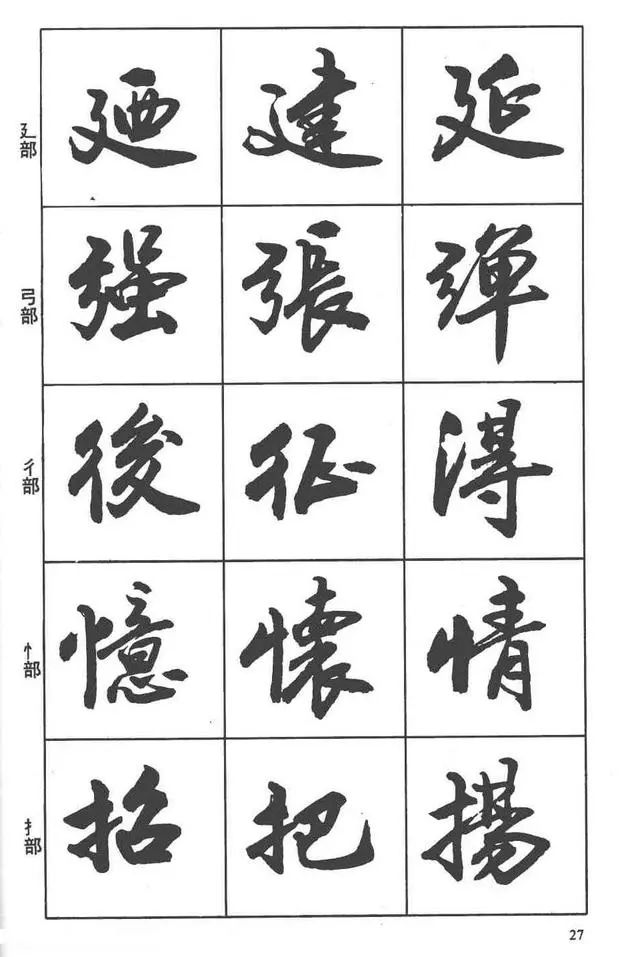 廴部 廼 建 延
弓部 强 張 弹
彳部 後 征 得
忄部 憶 懷 情
扌部 招 把 揚
27